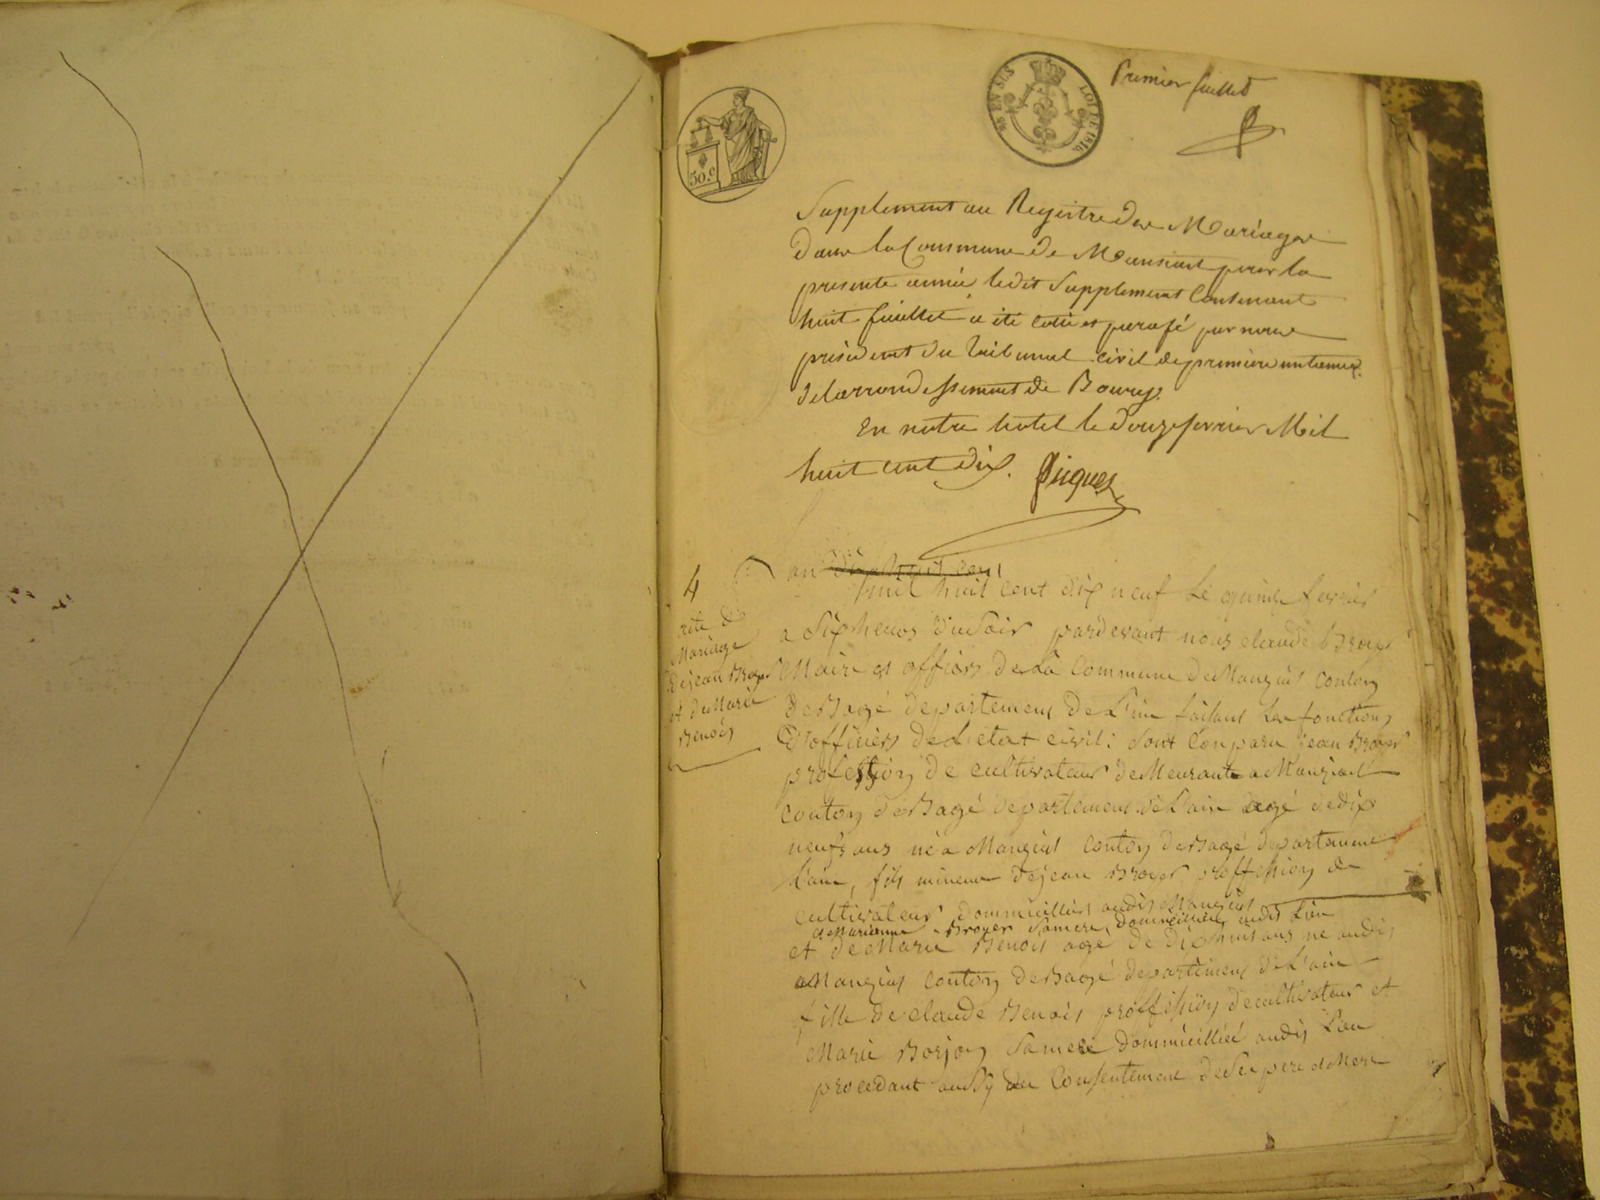 Premier feuillet
30 c
EN SUS
LOI DE 1816
Supplement au Registre des Mariages
dans la Commune de Manziat pour la
presente année ledit Supplement Contenant
huit feuillet a été cotté et parafé par nous
président du tribunal civil de premiere instance
de l'arrondissement de Bourg.
En notre hotel le douze fevrier Mil
huit cent dix.
Picquet
4
acte de
Mariage
de jean Broyer
et de Marie
Benoit
an dix huit cent
mil huit cent dix neuf Le quinze fevrier
a Six heures du Soir pardevant nous claude Broyer
Maire et officier de La Commune de Manziat Canton
de Bagé departement de L'ain faisant Les fonctions
D'officiers de L'etat civil: Sont Comparu jean Broyer
profession de cultivateur demeurant a Manziat
Canton de Bagé departement de L'ain agé de dix
neuf ans né a Manziat Canton de Bagé departement
L'ain, fils mineur de jean Broyer proffession de
cultivateur dommicilliés audit Manziat
et Marianne Broyer Sa mere dommicilliée audit Lieu
et de Marie Benoit agé de dix huit ans né audit
Manziat Canton de Bagé departement de L'ain
fille de claude Benoit proffession de cultivateur et
Marie Borjon Sa mere dommicilliée audit Lieu
procedant aussy du Consentement de Ses pere et Mere